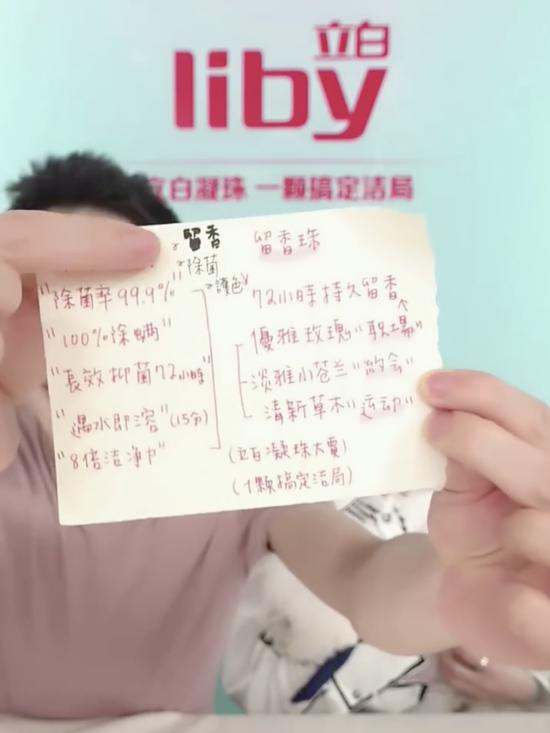 立白
liby
立白凝珠 一顆搞定洁局
留香
除菌
護色
"除菌率99.9%"
"100%除螨"
"長效抑菌72小時"
"遇水即溶"(15分)
"8倍洁净力"
留香珠
72小時持久留香
優雅玫瑰"职場"
淡雅小苍兰"約会"
清新草木"运动"
(立白凝珠大賣)
(1顆搞定洁局)